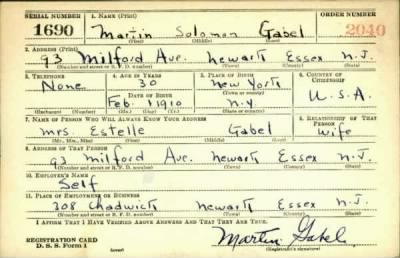 SERIAL NUMBER 1. NAME (Print) ORDER NUMBER
1690 Martin Solomon Gabel 2040
(First) (Middle) (Last)
2. ADDRESS (Print)
93 Milford Ave. Newark Essex N.J.
(Number and street or R. F. D. number) (Town) (County) (State)
3. TELEPHONE 4. AGE IN YEARS 5. PLACE OF BIRTH 6. COUNTRY OF CITIZENSHIP
None 30 New York
(Town or county)
DATE OF BIRTH
Feb. 1 1910 N.Y U.S.A
(Exchange) (Number) (Mo.) (Day) (Yr.) (State or country)
7. NAME OF PERSON WHO WILL ALWAYS KNOW YOUR ADDRESS 8. RELATIONSHIP OF THAT PERSON
Mrs. Estelle Gabel Wife
(Mr., Mrs., Miss) (First) (Middle) (Last)
9. ADDRESS OF THAT PERSON
93 Milford Ave. Newark Essex N.J.
(Number and street or R. F. D. number) (Town) (County) (State)
10. EMPLOYER'S NAME
Self
11. PLACE OF EMPLOYMENT OR BUSINESS
308 Chadwick Newark Essex N.J.
(Number and street or R. F. D. number) (Town) (County) (State)
I AFFIRM THAT I HAVE VERIFIED ABOVE ANSWERS AND THAT THEY ARE TRUE.
REGISTRATION CARD
D. S. S. Form 1 (over) Martin Gabel
(Registrant's signature)